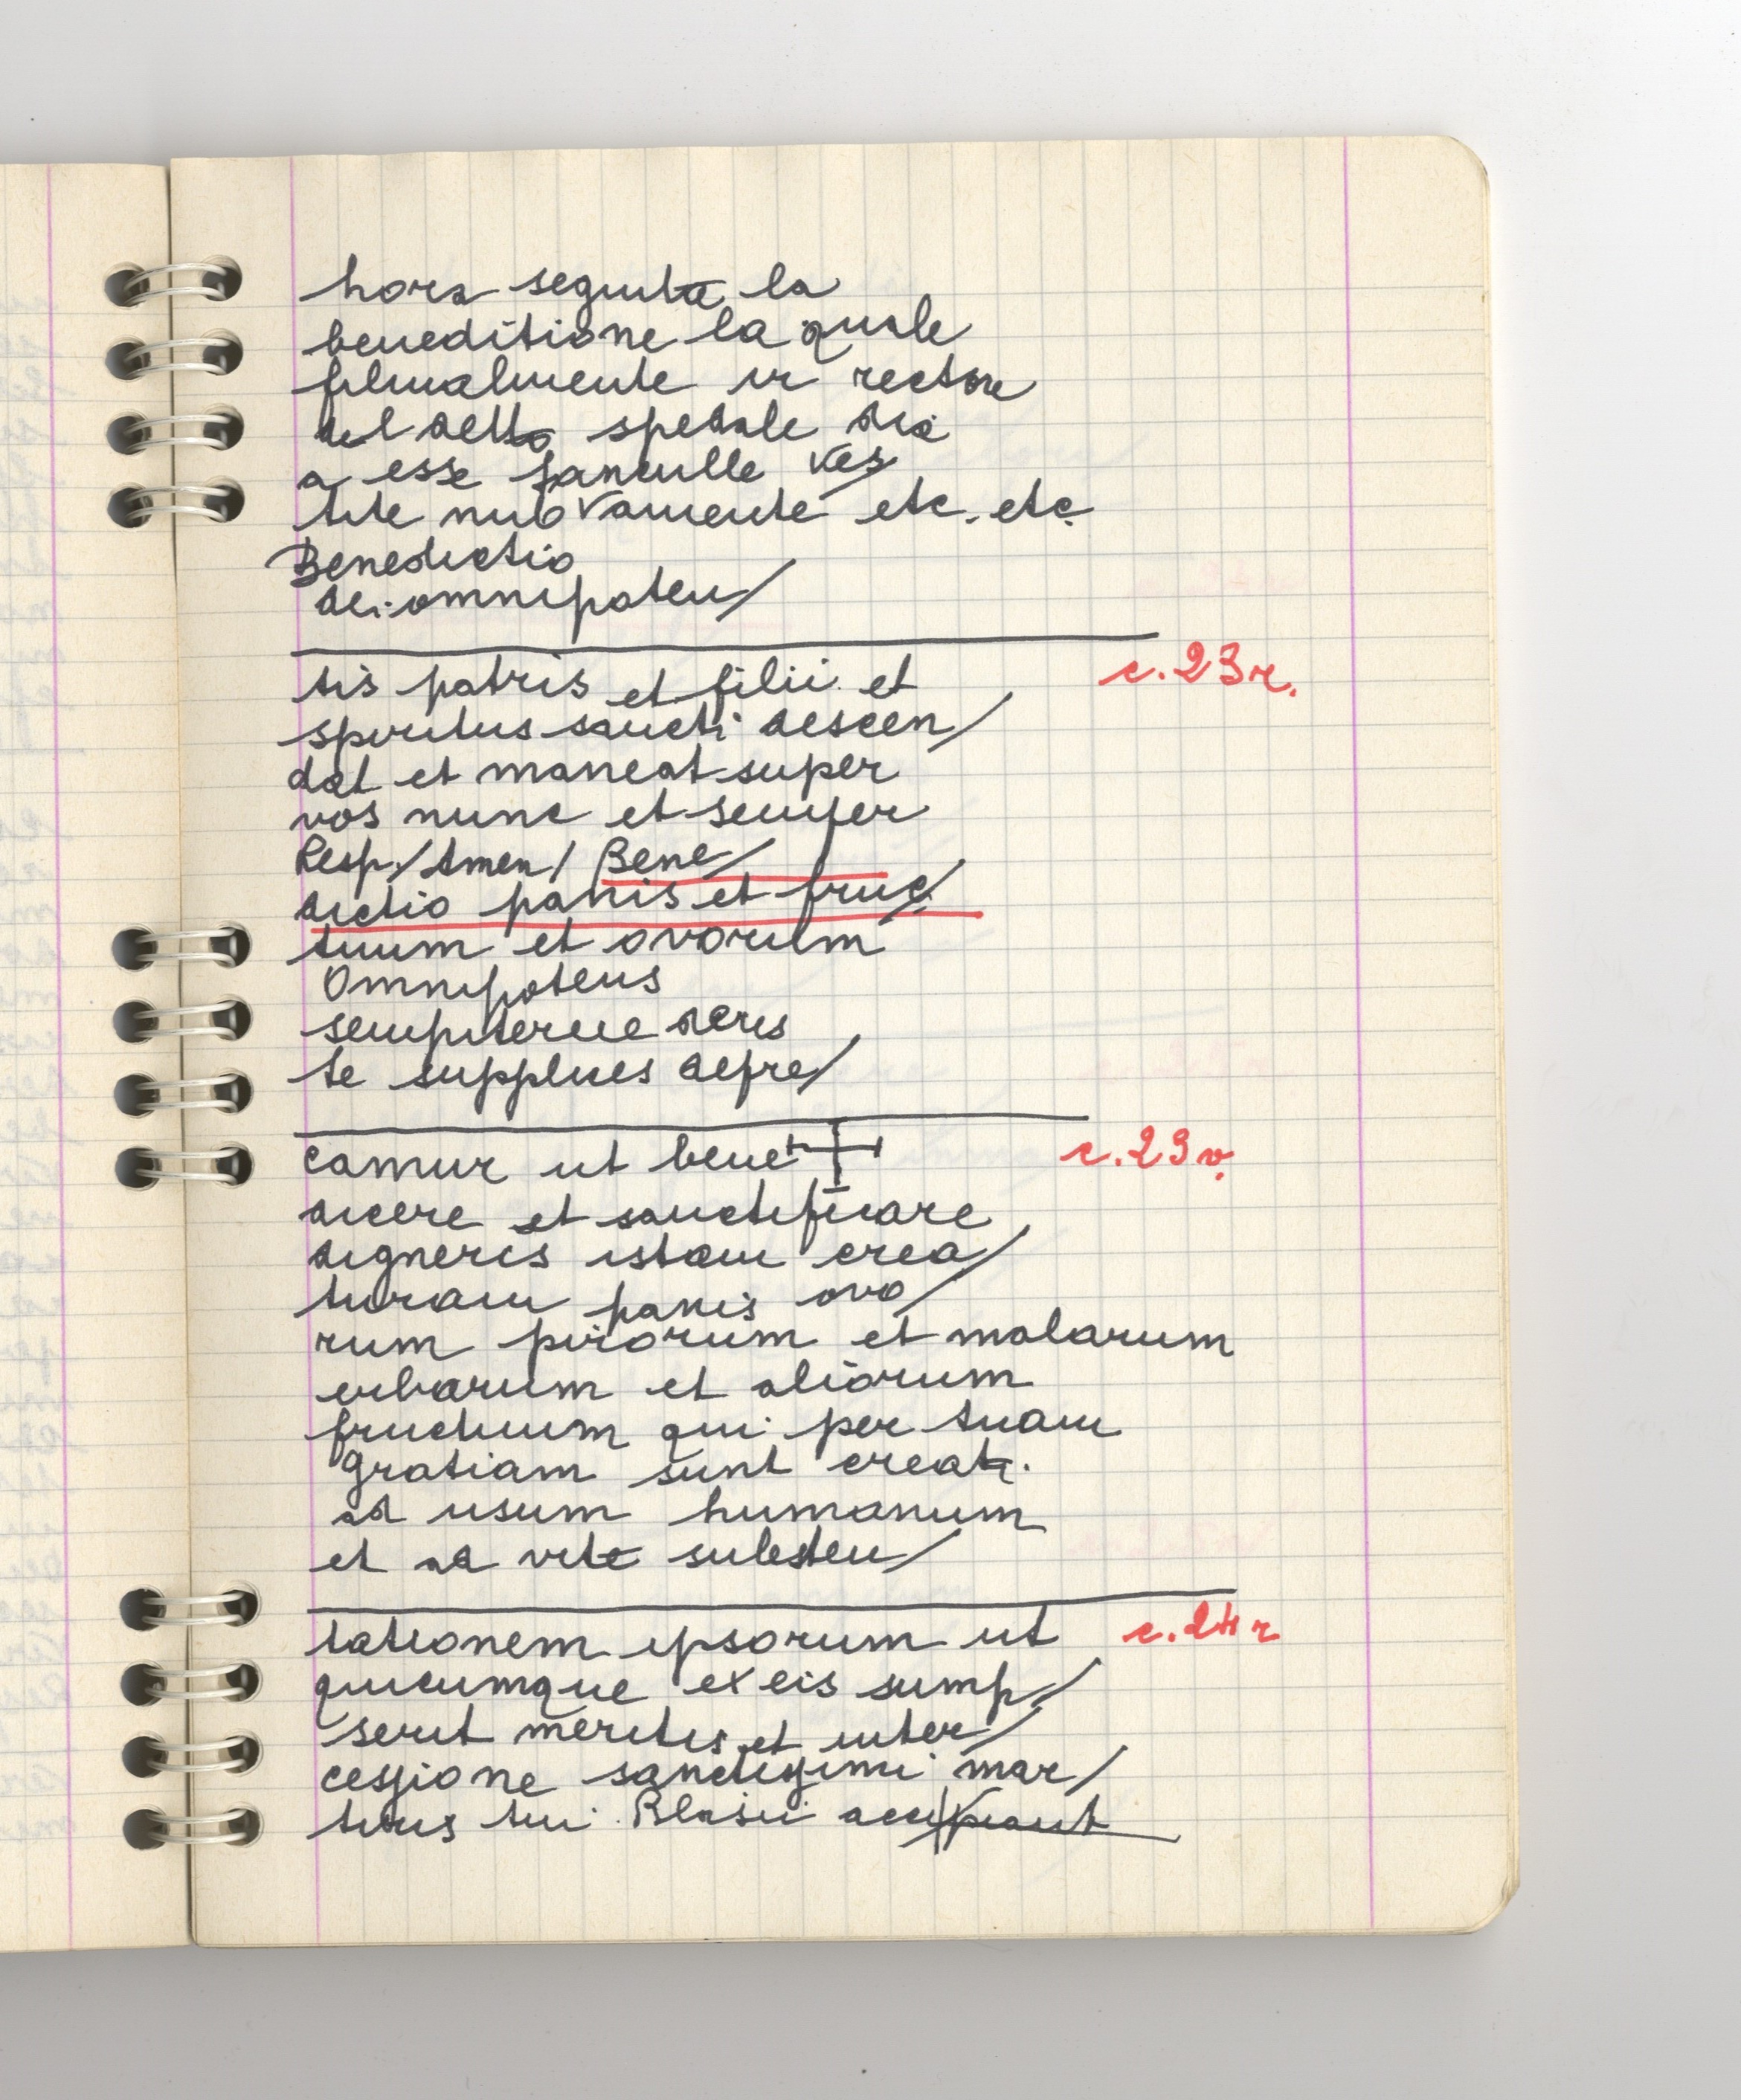 hora seguita la
beneditione la quale
finalmente ir rectore
del detto spedale dia
a esse fanculle ves/
tite nuovamente etc. etc.
Benedictio
dei omnipoten/
tis patris et filii et
c. 23r.
spiritus sancti descen/
dat et maneat super
vos nunc et semper
Resp/Amen/ Bene/
dictio panis et fruc/
tuum et ovorum
Omnipotens
sempiterne deus
te supplices depre/
camur ut bene ┼
c. 23v.
dicere et sanctificare
digneris istam crea/
turam panis ovo/
rum pirorum et malarum
erbarum et aliorum
fructuum qui per tuam
gratiam sunt creati
ad usum humanum
et ad vite susten/
tationem ipsorum ut
c. 24r
quicumque ex eis sump/
serit meritis et inter/
cessione sanctissimi mar/
tiris tui Blasii accipiant